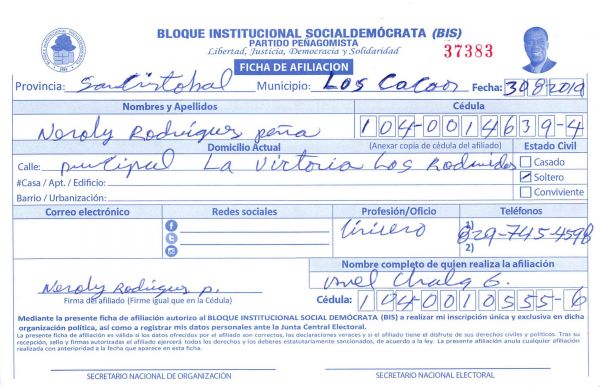 BLOQUE INSTITUCIONAL SOCIALDEMÓCRATA (BIS)
PARTIDO PEÑAGOMISTA
Libertad, Justicia, Democracia y Solidaridad
37383
FICHA DE AFILIACION
Provincia: San Cristobal Municipio: Los Cacaos Fecha: 30 8 2019
Nombres y Apellidos Cédula
Neroly Rodriguez peña 104-0014639-4
Domicilio Actual (Anexar copia de cédula del afiliado) Estado Civil
Calle: La Victoria Los Casado
#Casa / Apt. / Edificio: Soltero
Barrio / Urbanización: Conviviente
Correo electrónico Redes sociales Profesión/Oficio Teléfonos
1) 829-745-4598
2)
Nombre completo de quien realiza la afiliación
Neroly Rodriguez p.
Firma del afiliado (Firme igual que en la Cédula) Cédula: 104-0010555-6
Mediante la presente ficha de afiliación autorizo al BLOQUE INSTITUCIONAL SOCIAL DEMÓCRATA (BIS) a realizar mi inscripción única y exclusiva en dicha
organización política, así como a registrar mis datos personales ante la Junta Central Electoral.
La presente ficha de afiliación es válida si los datos ofrecidos por el afiliado son correctos, las declaraciones veraces y si el afiliado tiene el disfrute de sus derechos civiles y políticos. Tras su
recepción, sello y firmas autorizadas el afiliado ejercerá todos los derechos y los deberes estatutariamente sancionados, de acuerdo a la ley. La presente afiliación anula cualquier afiliación
realizada con anterioridad a la fecha que aparece en esta ficha.
SECRETARIO NACIONAL DE ORGANIZACIÓN SECRETARIO NACIONAL ELECTORAL